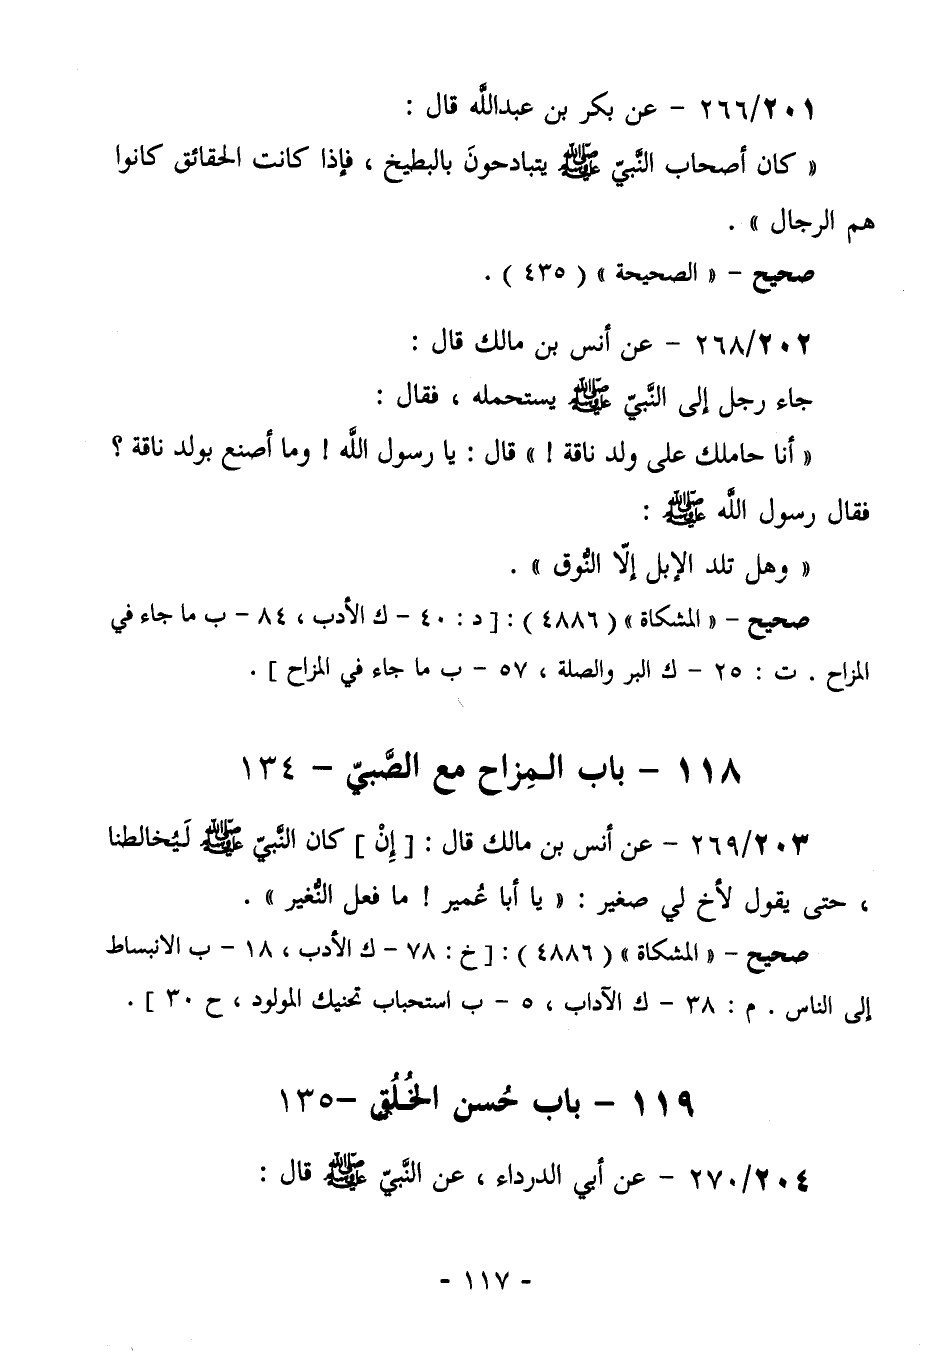 ٢٦٦/٢٠١ – عن بكر بن عبداللَّه قال :
« كان أصحاب النَّبيّ ﷺ يتبادحونَ بالبطيخ ، فإذا كانت الحقائق كانوا
هم الرجال » .
صحيح – « الصحيحة » ( ٤٣٥ ) .
٢٦٨/٢٠٢ – عن أنس بن مالك قال :
جاء رجل إلى النَّبيّ ﷺ يستحمله ، فقال :
« أنا حاملك على ولد ناقة ! » قال : يا رسول اللَّه ! وما أصنع بولد ناقة ؟
فقال رسول اللَّه ﷺ :
« وهل تلد الإبل إلّا النُّوق » .
صحيح – « المشكاة » ( ٤٨٨٦ ) : [ د : ٤٠ – ك الأدب ، ٨٤ – ب ما جاء في
المزاح . ت : ٢٥ – ك البر والصلة ، ٥٧ – ب ما جاء في المزاح ] .
١١٨ – باب الـمِزاح مع الصَّبيّ – ١٣٤
٢٦٩/٢٠٣ – عن أنس بن مالك قال : [ إِنْ ] كان النَّبيّ ﷺ لَيُخالطنا
، حتى يقول لأخ لي صغير : « يا أبا عُمير ! ما فعل النُّغير » .
صحيح – « المشكاة » ( ٤٨٨٦ ) : [ خ : ٧٨ – ك الأدب ، ١٨ – ب الانبساط
إلى الناس . م : ٣٨ – ك الآداب ، ٥ – ب استحباب تحنيك المولود ، ح ٣٠ ] .
١١٩ – باب حُسن الخُلُقِ –١٣٥
٢٧٠/٢٠٤ – عن أبي الدرداء ، عن النَّبيّ ﷺ قال :
- ١١٧ -